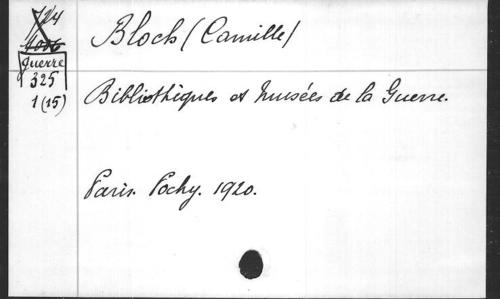 guerre
325
1(15)
Bloch (Camille)
Bibliothèques et musées de la Guerre.
Paris. Pochy. 1920.